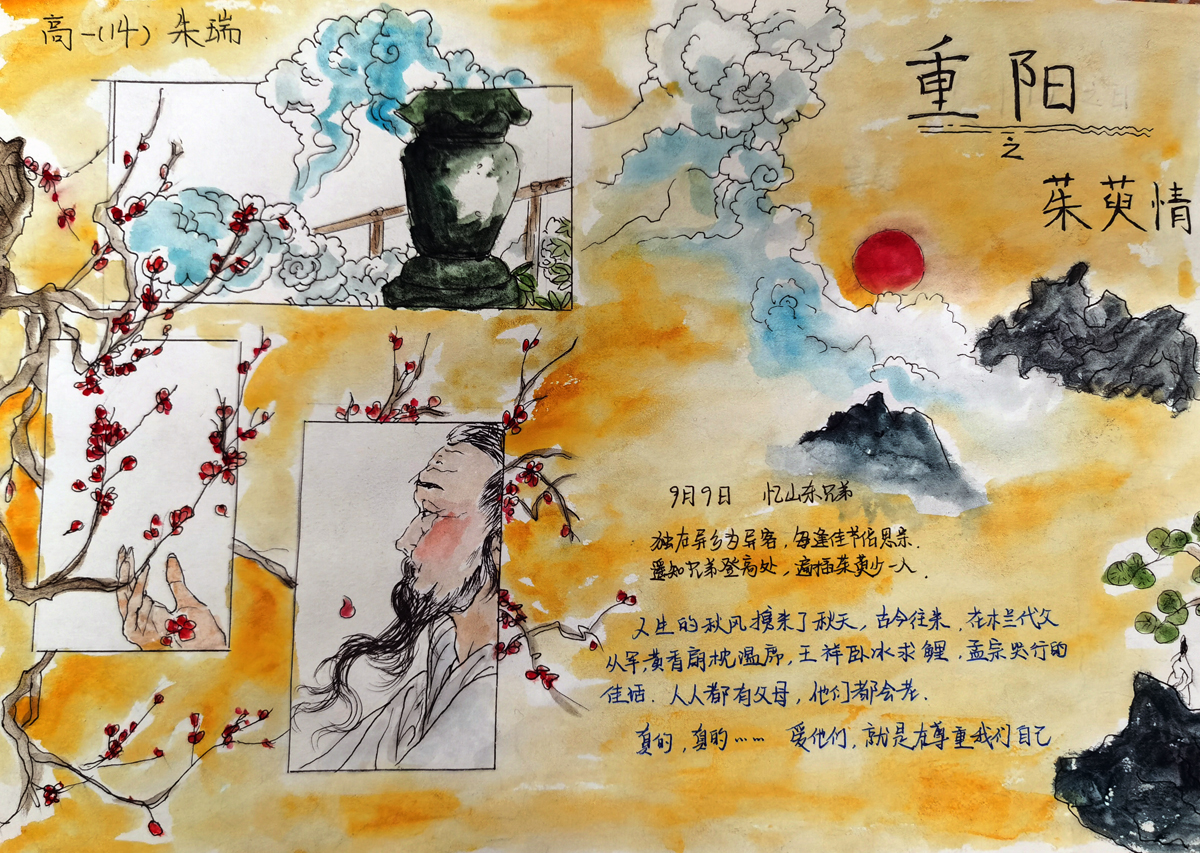 高一(14) 朱瑞
重阳
之
茱萸情
9月9日 忆山东兄弟
独在异乡为异客，每逢佳节倍思亲.
遥知兄弟登高处，遍插茱萸少一人.
人生的秋风捎来了秋天，古今往来，在木兰代父
从军，黄香扇枕温席，王祥卧冰求鲤，孟宗哭竹的
佳话. 人人都有父母，他们都会老.
真的，真的…… 爱他们，就是在尊重我们自己